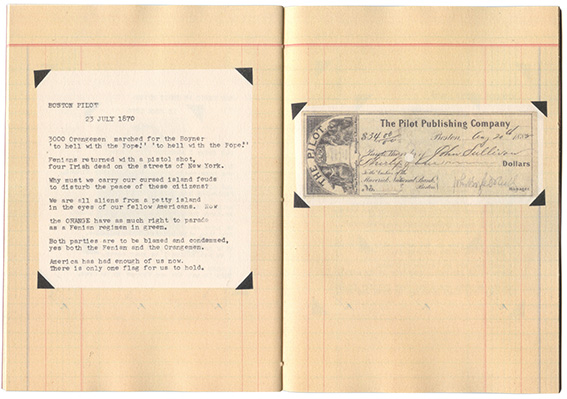 BOSTON PILOT
23 JULY 1870
3000 Orangemen marched for the Boyne:
'to hell with the Pope!' 'to hell with the Pope!'
Fenians returned with a pistol shot,
four Irish dead on the streets of New York.
Why must we carry our cursed island feuds
to disturb the peace of these citizens?
We are all aliens from a petty island
in the eyes of our fellow Americans. Now
the ORANGE have as much right to parade
as a Fenian regimen in green.
Both parties are to be blamed and condemned,
yes both the Fenian and the Orangemen.
America has had enough of us now.
There is only one flag for us to hold.
The Pilot Publishing Company
$34.00 Boston, Aug 20th
THE PILOT
John Sullivan
Thirty four Dollars
Maverick National Bank
No. Boston
MANAGER